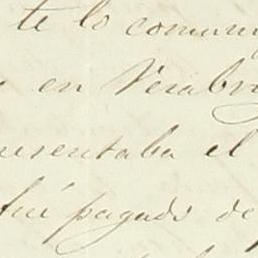 te lo comuni
en Verabr
resentaba el
fué pagado de